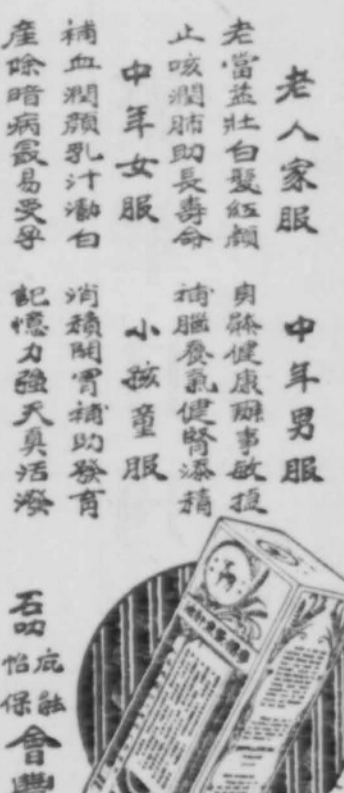 老人家服
老當益壯白髮紅顏
止咳潤肺助長壽命
中年女服
補血潤顏乳汁白
產除暗病最易受孕
中年男服
身體健康辦事敏捷
補腦養氣健腎添精
小孩童服
消積開胃補助發育
記憶力強天真活潑
石叻
庇能
怡保
會